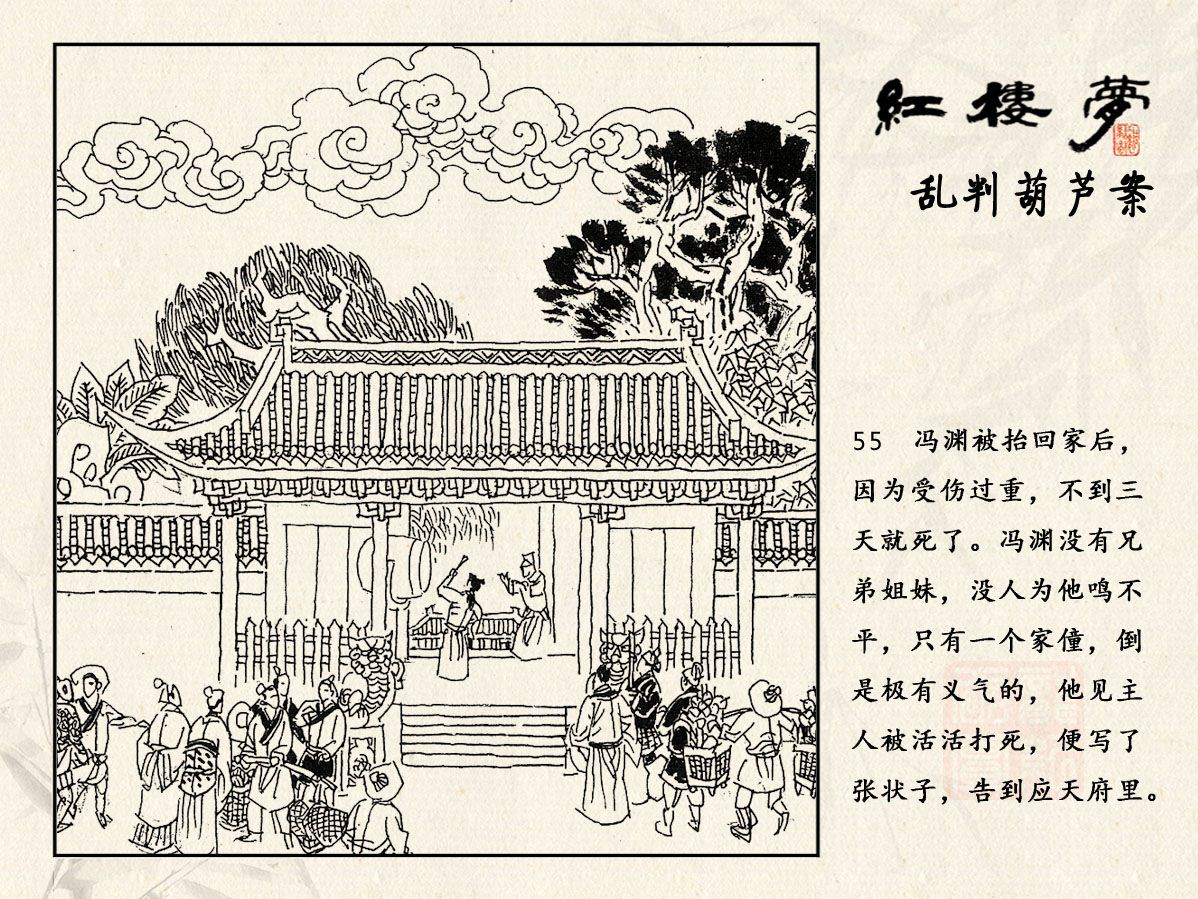 紅楼夢
乱判葫芦案
55 冯渊被抬回家后，
因为受伤过重，不到三
天就死了。冯渊没有兄
弟姐妹，没人为他鸣不
平，只有一个家僮，倒
是极有义气的，他见主
人被活活打死，便写了
张状子，告到应天府里。